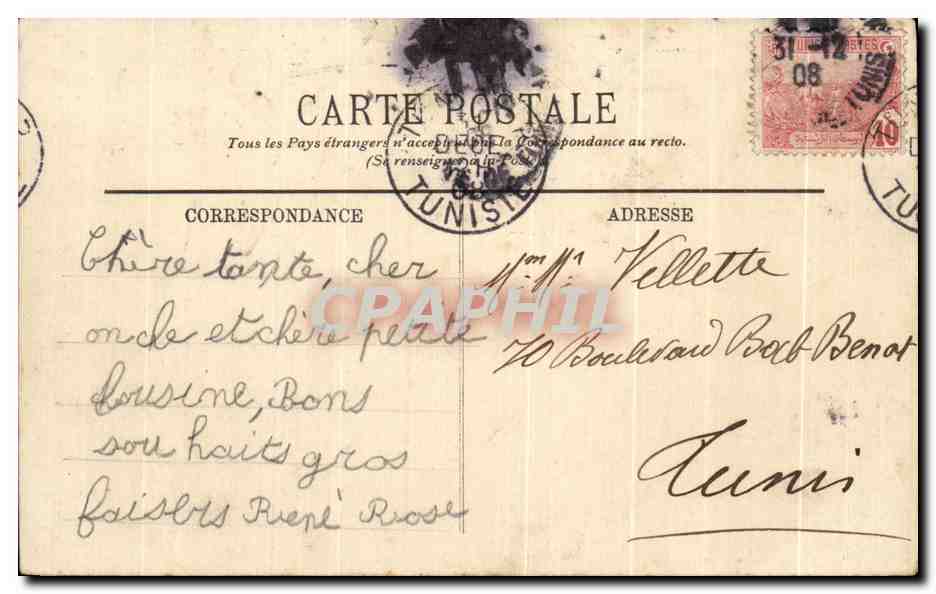 CARTE POSTALE
Tous les Pays étrangers n'acceptent pas la Correspondance au recto.
(Se renseigner à la Poste)
CORRESPONDANCE
ADRESSE
Chère tante, cher
oncle et chère petite
Cousine, Bons
sou haits gros
René Rose
Vellette
70 Boulevard Bab Benat
Tunis
31 -12
08
POSTES
10
TUNIS
DECE
08
TUNISIE
TU
CPAPHIL